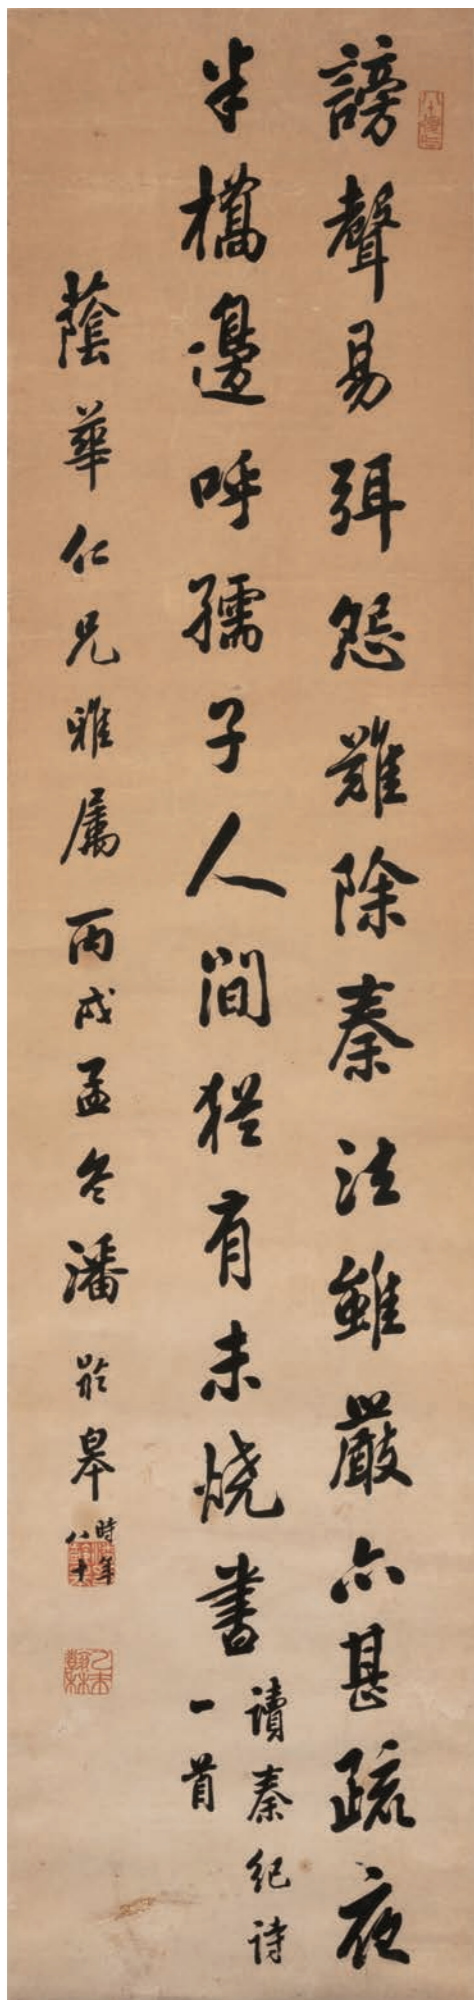 謗聲易弭怨難除秦法雖嚴亦甚疏夜
半橋邊呼孺子人間猶有未燒書
讀秦紀詩
一首
蔭華仁兄雅屬丙戌孟冬潘齡皋
時年
八十
乙未翰林